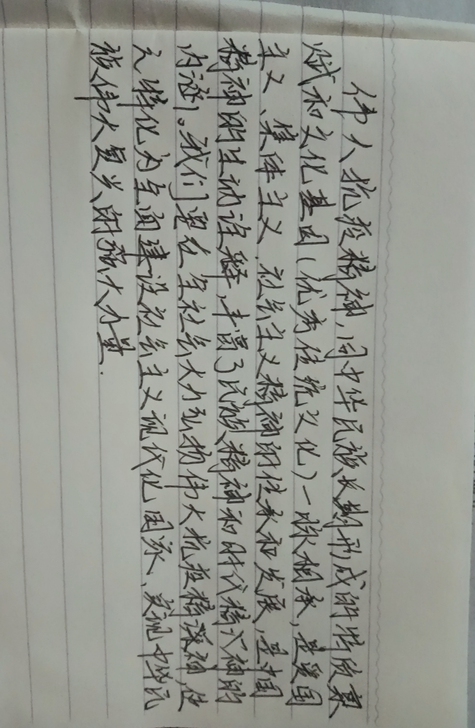 伟大抗疫精神,同中华民族长期形成的特质禀
赋和文化基因(优秀传统文化)一脉相承,是爱国
主义、集体主义、社会主义精神的传承和发展,是中国
精神的生动诠释,丰富了民族精神和时代精神的
内涵。我们要在全社会大力弘扬伟大抗疫精神,使
之转化为全面建设社会主义现代化国家、实现中华民
族伟大复兴的强大力量.